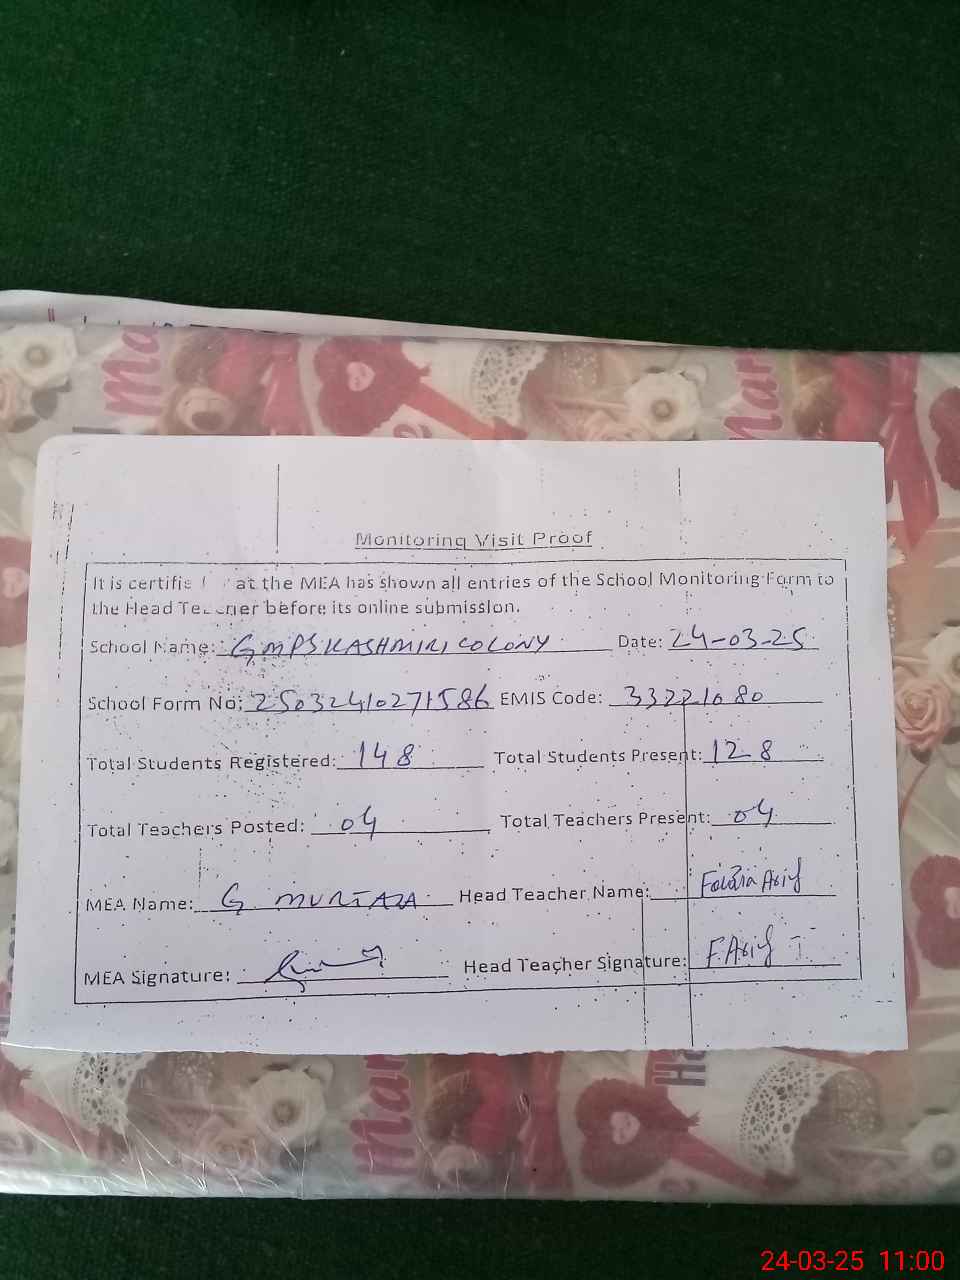 Monitoring Visit Proof
It is certifie at the MEA has shown all entries of the School Monitoring Form to
the Head Teacher before its online submission.
School Name: GMPS KASHMIRI COLONY Date: 24-03-25
School Form No: 25032410271586 EMIS Code: 33221080
Total Students Registered: 148 Total Students Present: 128
Total Teachers Posted: 04 Total Teachers Present: 04
MEA Name: G. MURTAZA Head Teacher Name: Fouzia Arif
MEA Signature: Head Teacher Signature: F.Arif
24-03-25 11:00